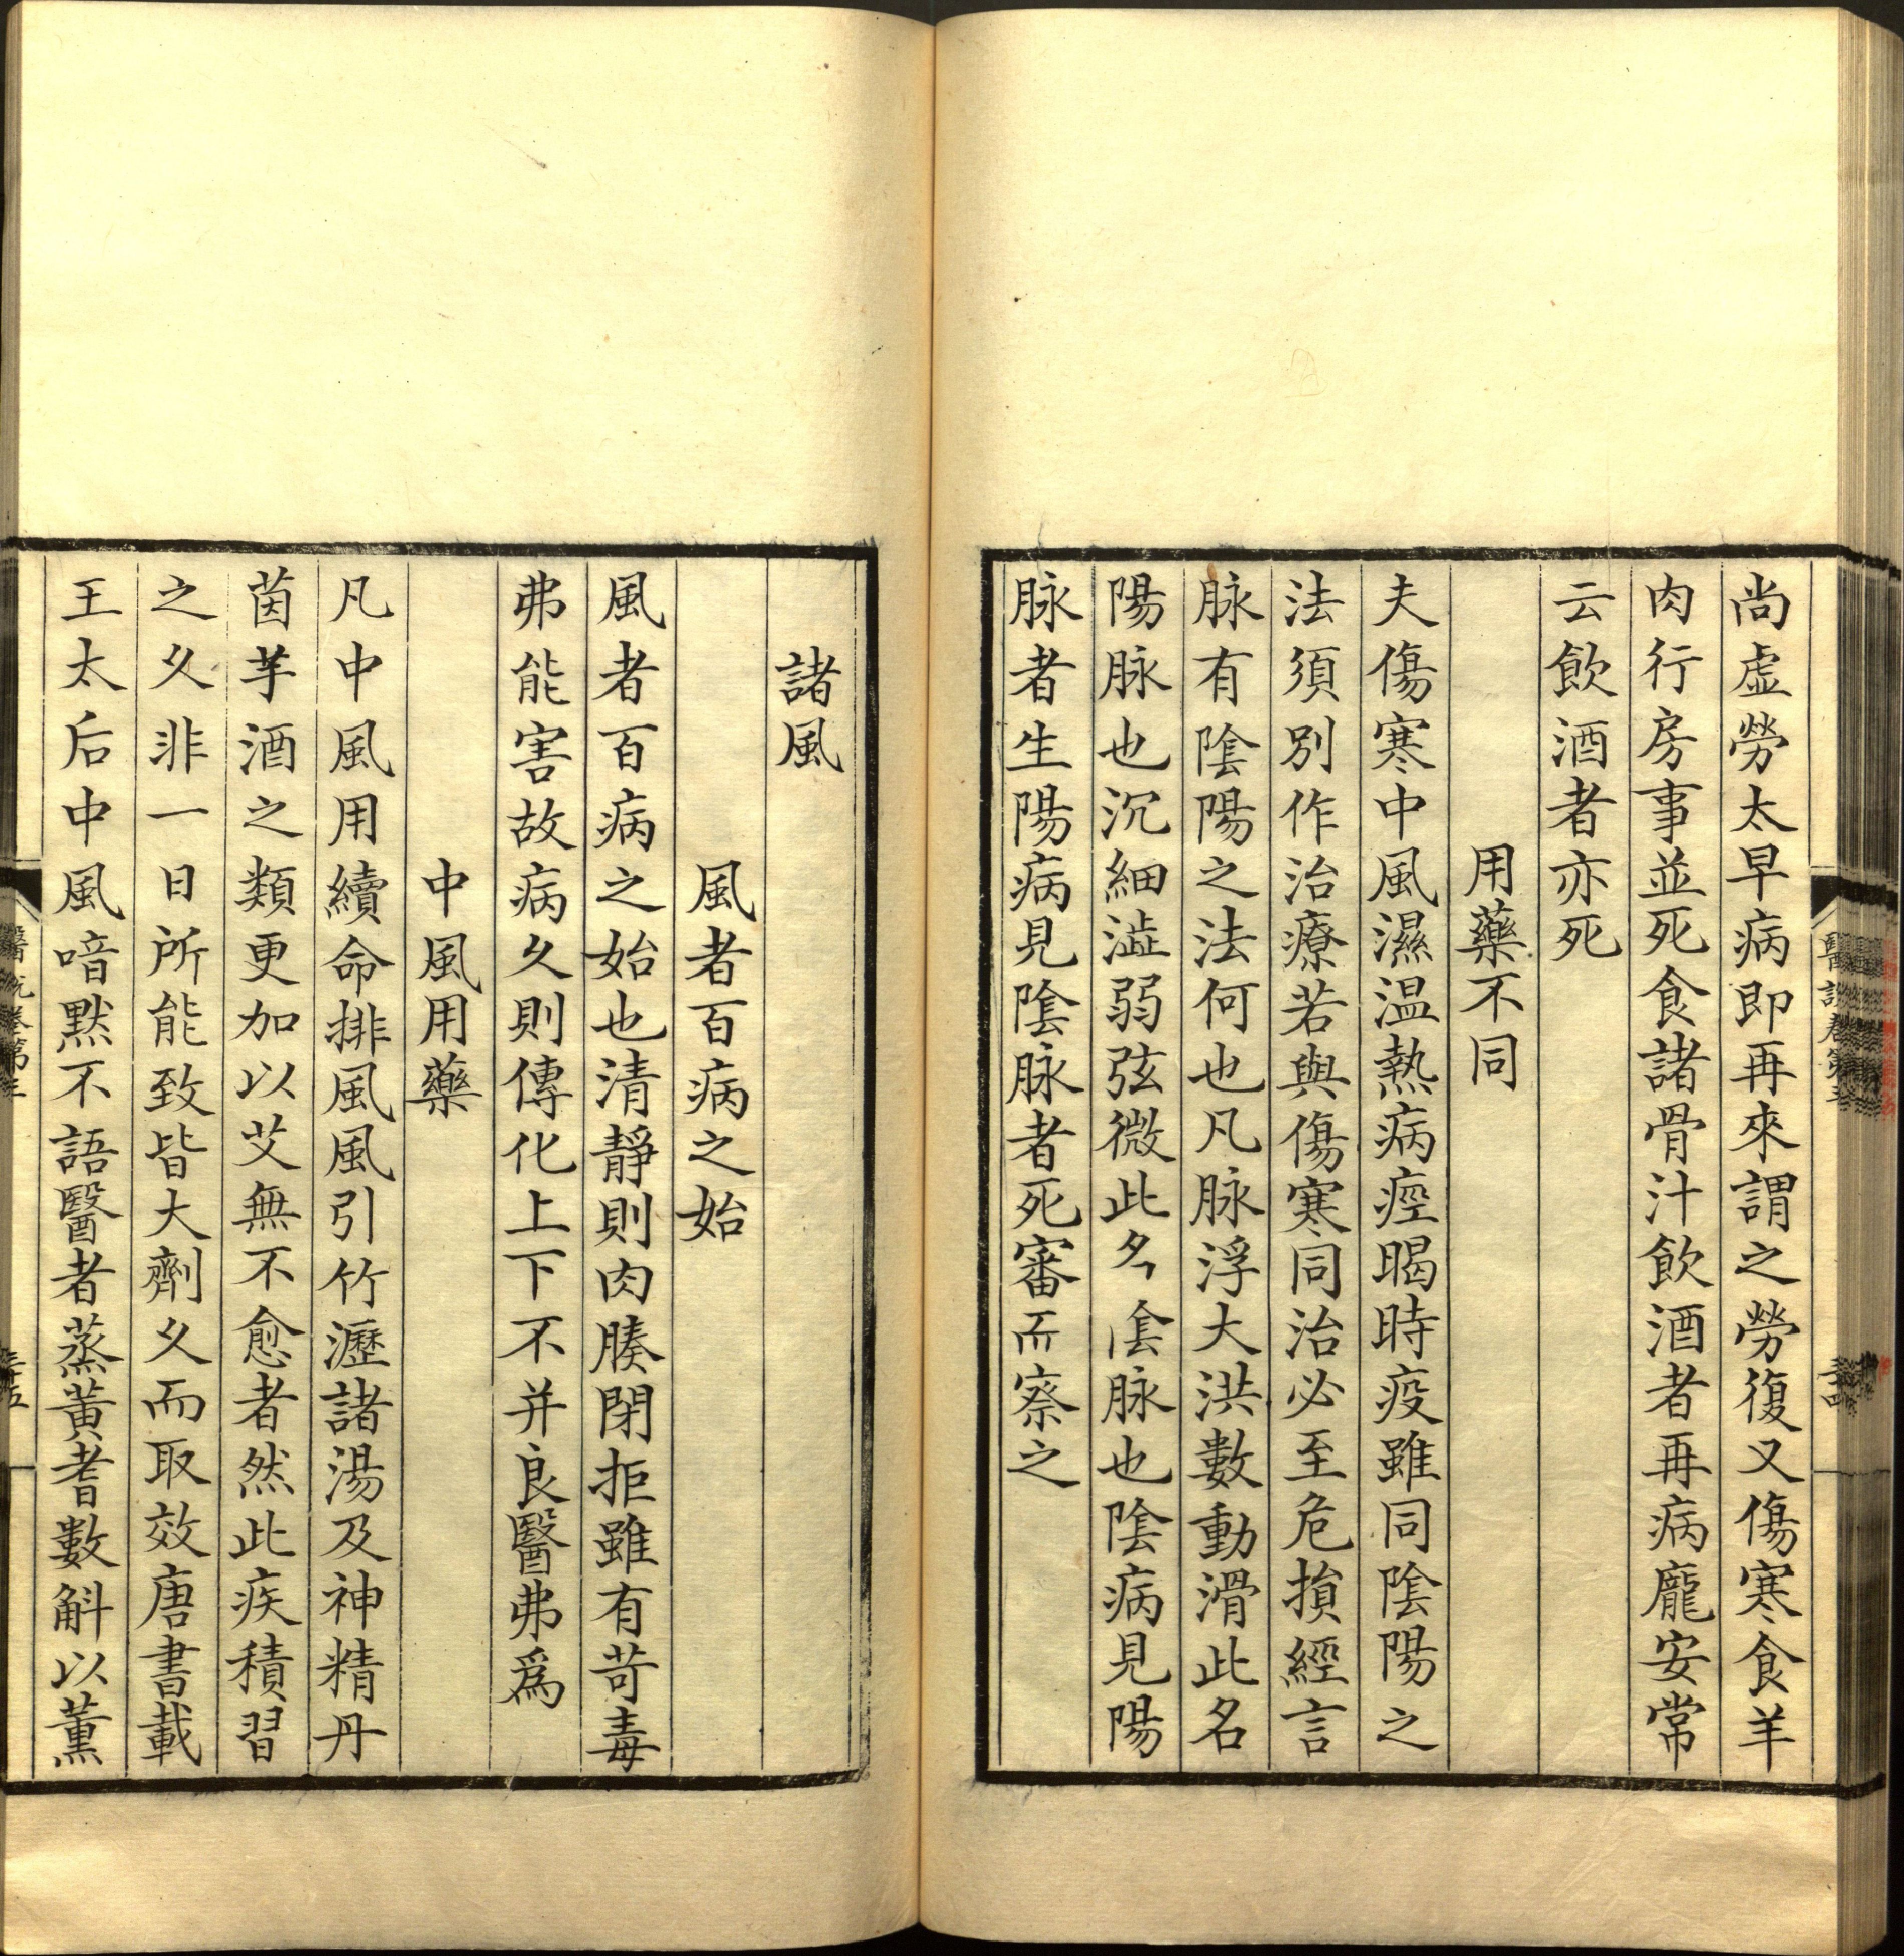 尚虛勞太早病即再來謂之勞復又傷寒食羊
肉行房事並死食諸骨汁飲酒者再病龐安常
云飲酒者亦死
用藥不同
夫傷寒中風濕温熱病痙暍時疫雖同陰陽之
法須別作治療若與傷寒同治必至危損經言
脉有陰陽之法何也凡脉浮大洪數動滑此名
陽脉也沉細澁弱弦微此名陰脉也陰病見陽
脉者生陽病見陰脉者死審而察之
諸風
風者百病之始
風者百病之始也清靜則肉腠閉拒雖有苛毒
弗能害故病久則傳化上下不并良醫弗爲
中風用藥
凡中風用續命排風風引竹瀝諸湯及神精丹
茵芋酒之類更加以艾無不愈者然此疾積習
之久非一日所能致皆大劑久而取效唐書載
王太后中風喑默不語醫者蒸黃耆數斛以薰
醫說卷第三
三十五